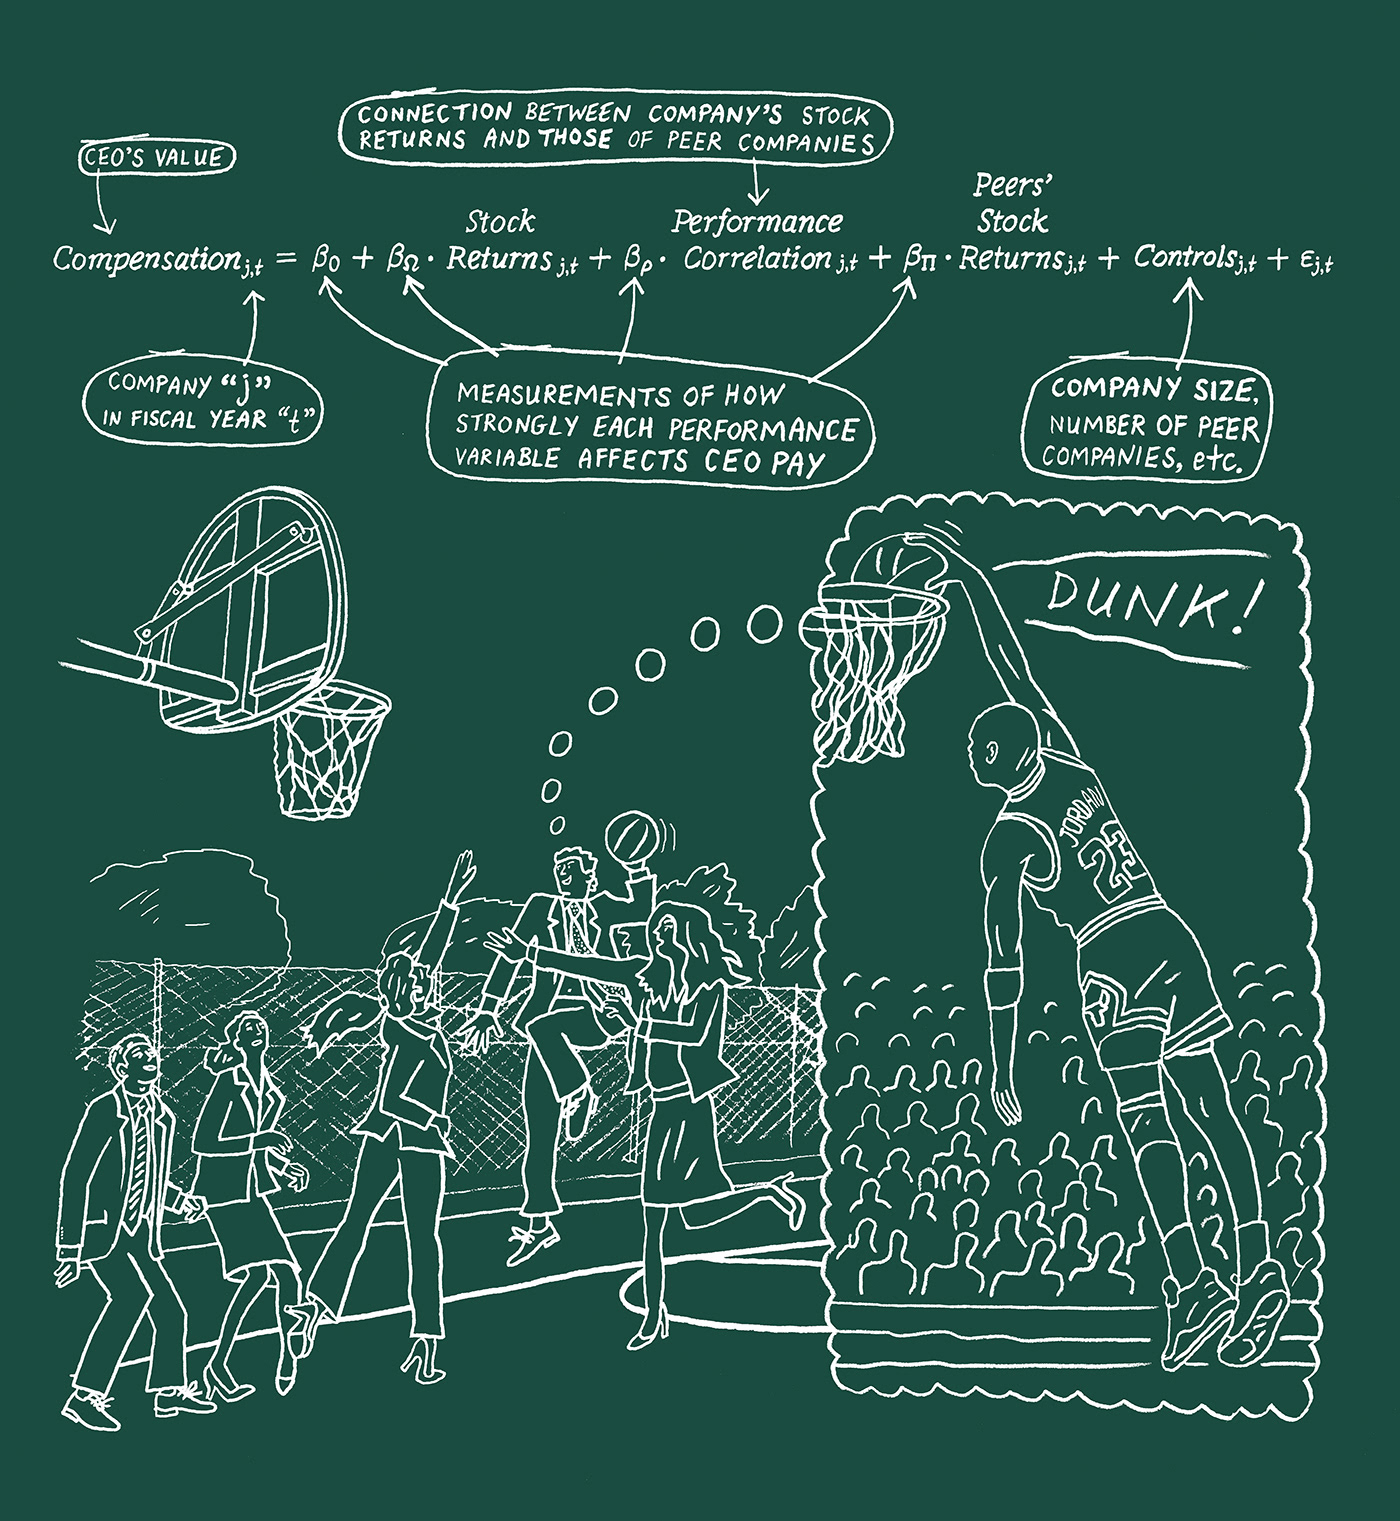 CONNECTION BETWEEN COMPANY'S STOCK
RETURNS AND THOSE OF PEER COMPANIES
CEO'S VALUE
Compensation j,t = β0 + βΩ · Stock Returns j,t + βρ · Performance Correlation j,t + βΠ · Peers' Stock Returns j,t + Controls j,t + εj,t
COMPANY "j"
IN FISCAL YEAR "t"
MEASUREMENTS OF HOW
STRONGLY EACH PERFORMANCE
VARIABLE AFFECTS CEO PAY
COMPANY SIZE,
NUMBER OF PEER
COMPANIES, etc.
DUNK!
JORDAN
23